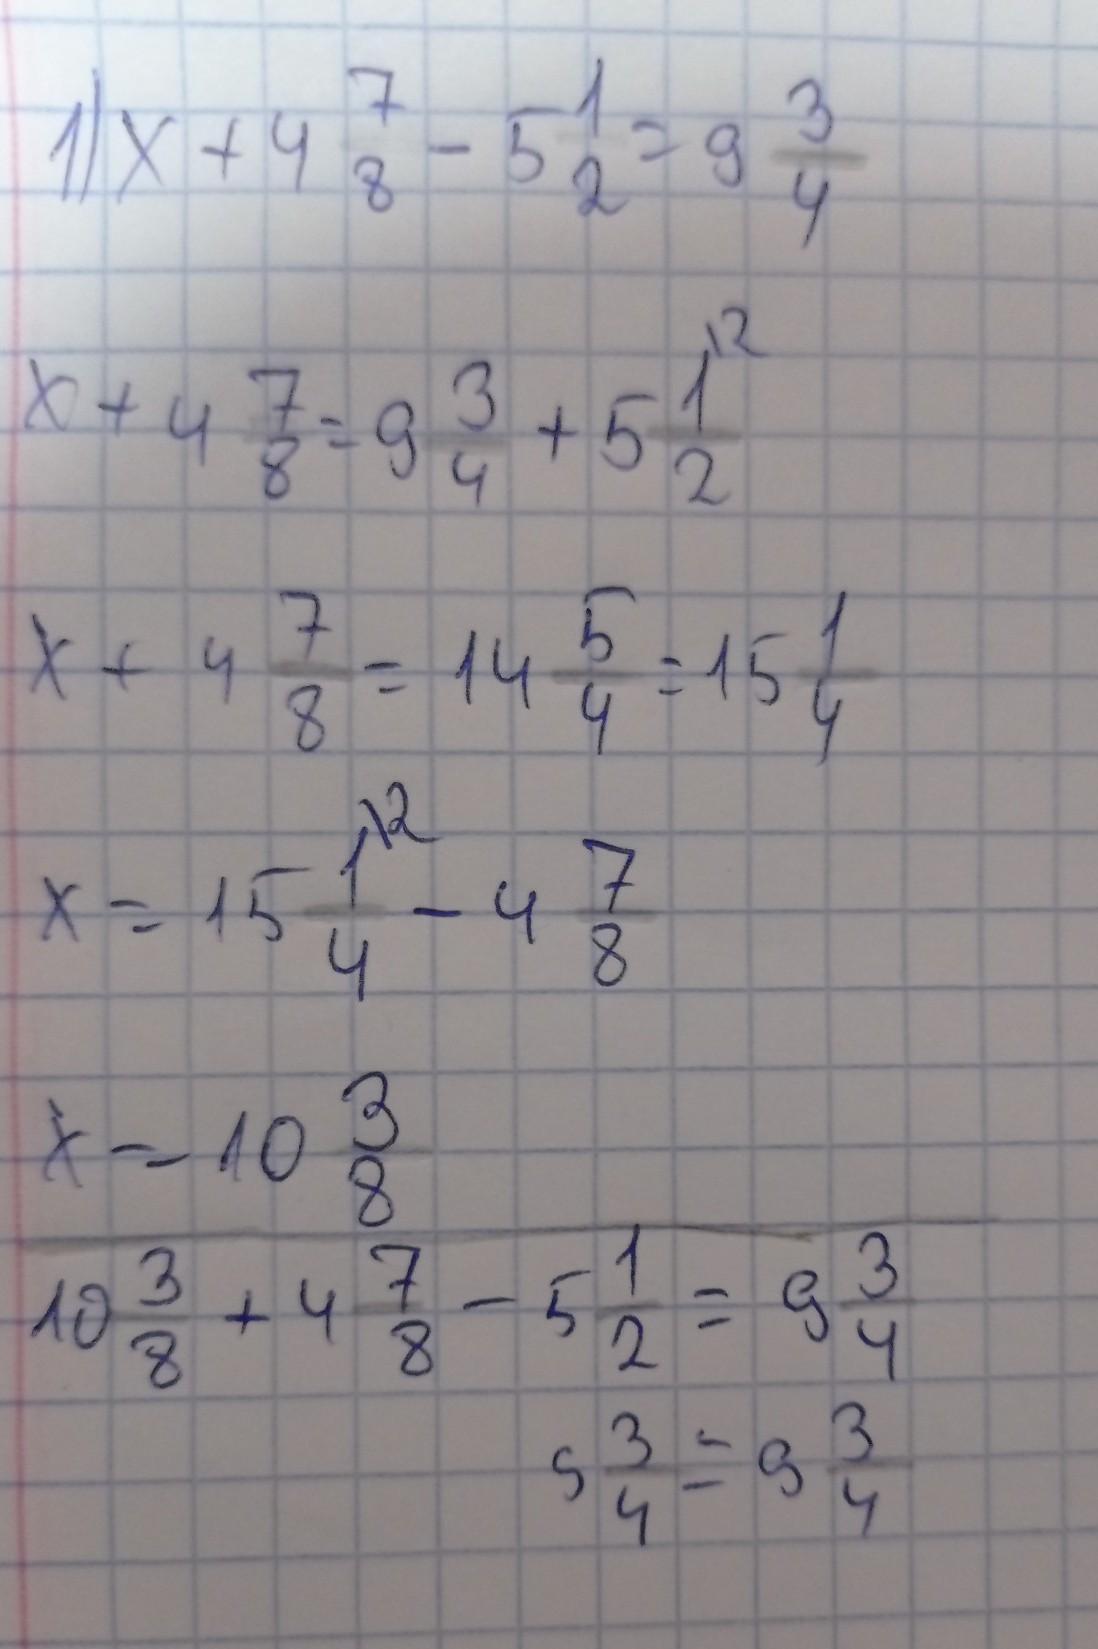 1) x + 4 7/8 - 5 1/2 = 9 3/4
x + 4 7/8 = 9 3/4 + 5 1\2/2
x + 4 7/8 = 14 5/4 = 15 1/4
x = 15 1\2/4 - 4 7/8
x = 10 3/8
10 3/8 + 4 7/8 - 5 1/2 = 9 3/4
9 3/4 = 9 3/4